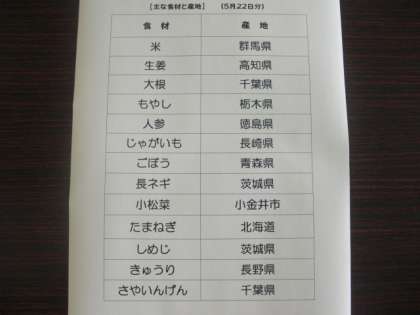 【主な食材と産地】 (5月22日分)
食 材 産 地
米 群馬県
生姜 高知県
大根 千葉県
もやし 栃木県
人参 徳島県
じゃがいも 長崎県
ごぼう 青森県
長ネギ 茨城県
小松菜 小金井市
たまねぎ 北海道
しめじ 茨城県
きゅうり 長野県
さやいんげん 千葉県